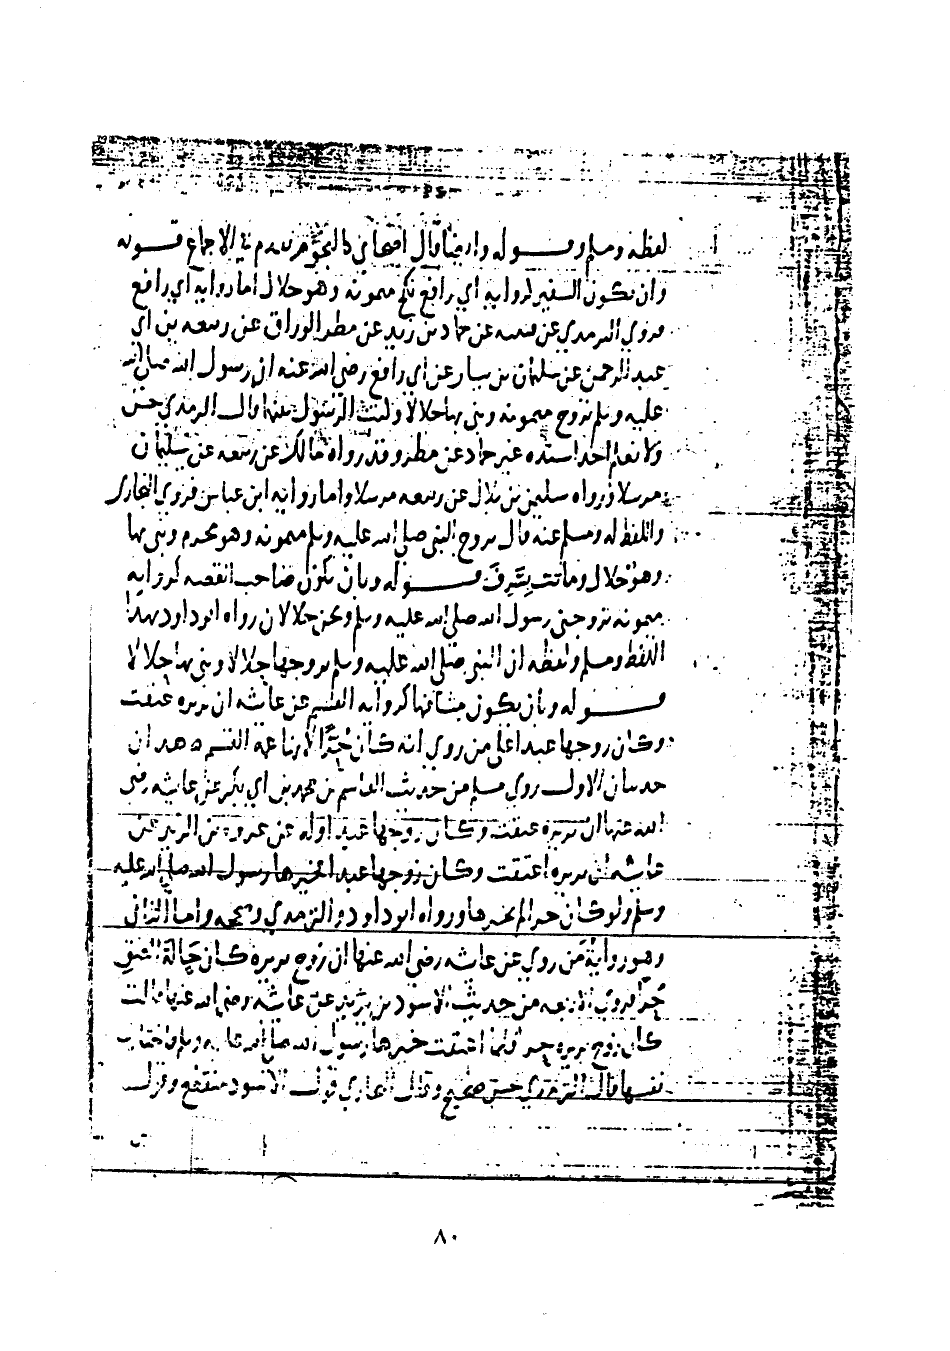 لفظه ومسلم قوله وايضا قال اصحابي كالنجوم تقدم في الاجماع قوله
وان يكون السفير لرواية ابي رافع نكح ميمونة وهو حلال اما رواية ابي رافع
فروي الترمذي عن قتيبه عن حماد بن زيد عن مطر الوراق عن ربيعه بن ابي
عبد الرحمن عن سليمان بن يسار عن ابي رافع رضي الله عنه ان رسول الله صلى الله
عليه وسلم تزوج ميمونه وبنى بها حلالا وكنت الرسول بينهما قال الترمذي حسن
ولا نعلم احدا اسنده غير حماد عن مطر وقد رواه مالك عن ربيعه عن سليمان
مرسلا ورواه سليمن بن بلال عن ربيعه مرسلا واما رواية ابن عباس فروى البخاري
واللفظ له ومسلم عنه قال تزوج النبي صلى الله عليه وسلم ميمونه وهو محرم وبنى بها
وهو حلال وماتت بسرف قوله وبان يكون صاحب القصه كرواية
ميمونه تزوجني رسول الله صلى الله عليه وسلم ونحن حلالان رواه ابو داود بهذا
اللفظ ومسلم ولفظه ان النبي صلى الله عليه وسلم تزوجها حلالا وبنى بها حلالا
قوله وبان يكون مشافها كرواية القسم عن عائشه ان بريره عتقت
وكان زوجها عبدا على من روى انه كان حرا لانها عمة القسم هذان
حديثان الاول روى مسلم من حديث القاسم بن محمد بن ابي بكر عن عائشه رضي
الله عنها ان بريره عتقت وكان زوجها عبدا وله عن عروة بن الزبير عن
عائشه ان بريره اعتقت وكان زوجها عبدا فخيرها رسول الله صلى الله عليه
وسلم ولو كان حرا لم يخيرها ورواه ابو داود والترمذي وصححه واما الثاني
وهو رواية من روى عن عائشه رضي الله عنها ان زوج بريره كان حالة العتق
حرا فروى الاربعه من حديث الاسود بن يزيد عن عائشه رضي الله عنها قالت
كان زوج بريره حرا فلما اعتقت خيرها رسول الله صلى الله عليه وسلم فاختارت
نفسها قال الترمذي حسن صحيح وقال البخاري قول الاسود منقطع وقول
٨٠